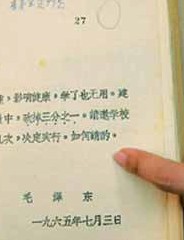 27
，影响健康，学了也无用。建
中，砍掉三分之一。请邀学校
几次，决定实行。如何请酌。
毛 泽 东
一九六五年七月三日